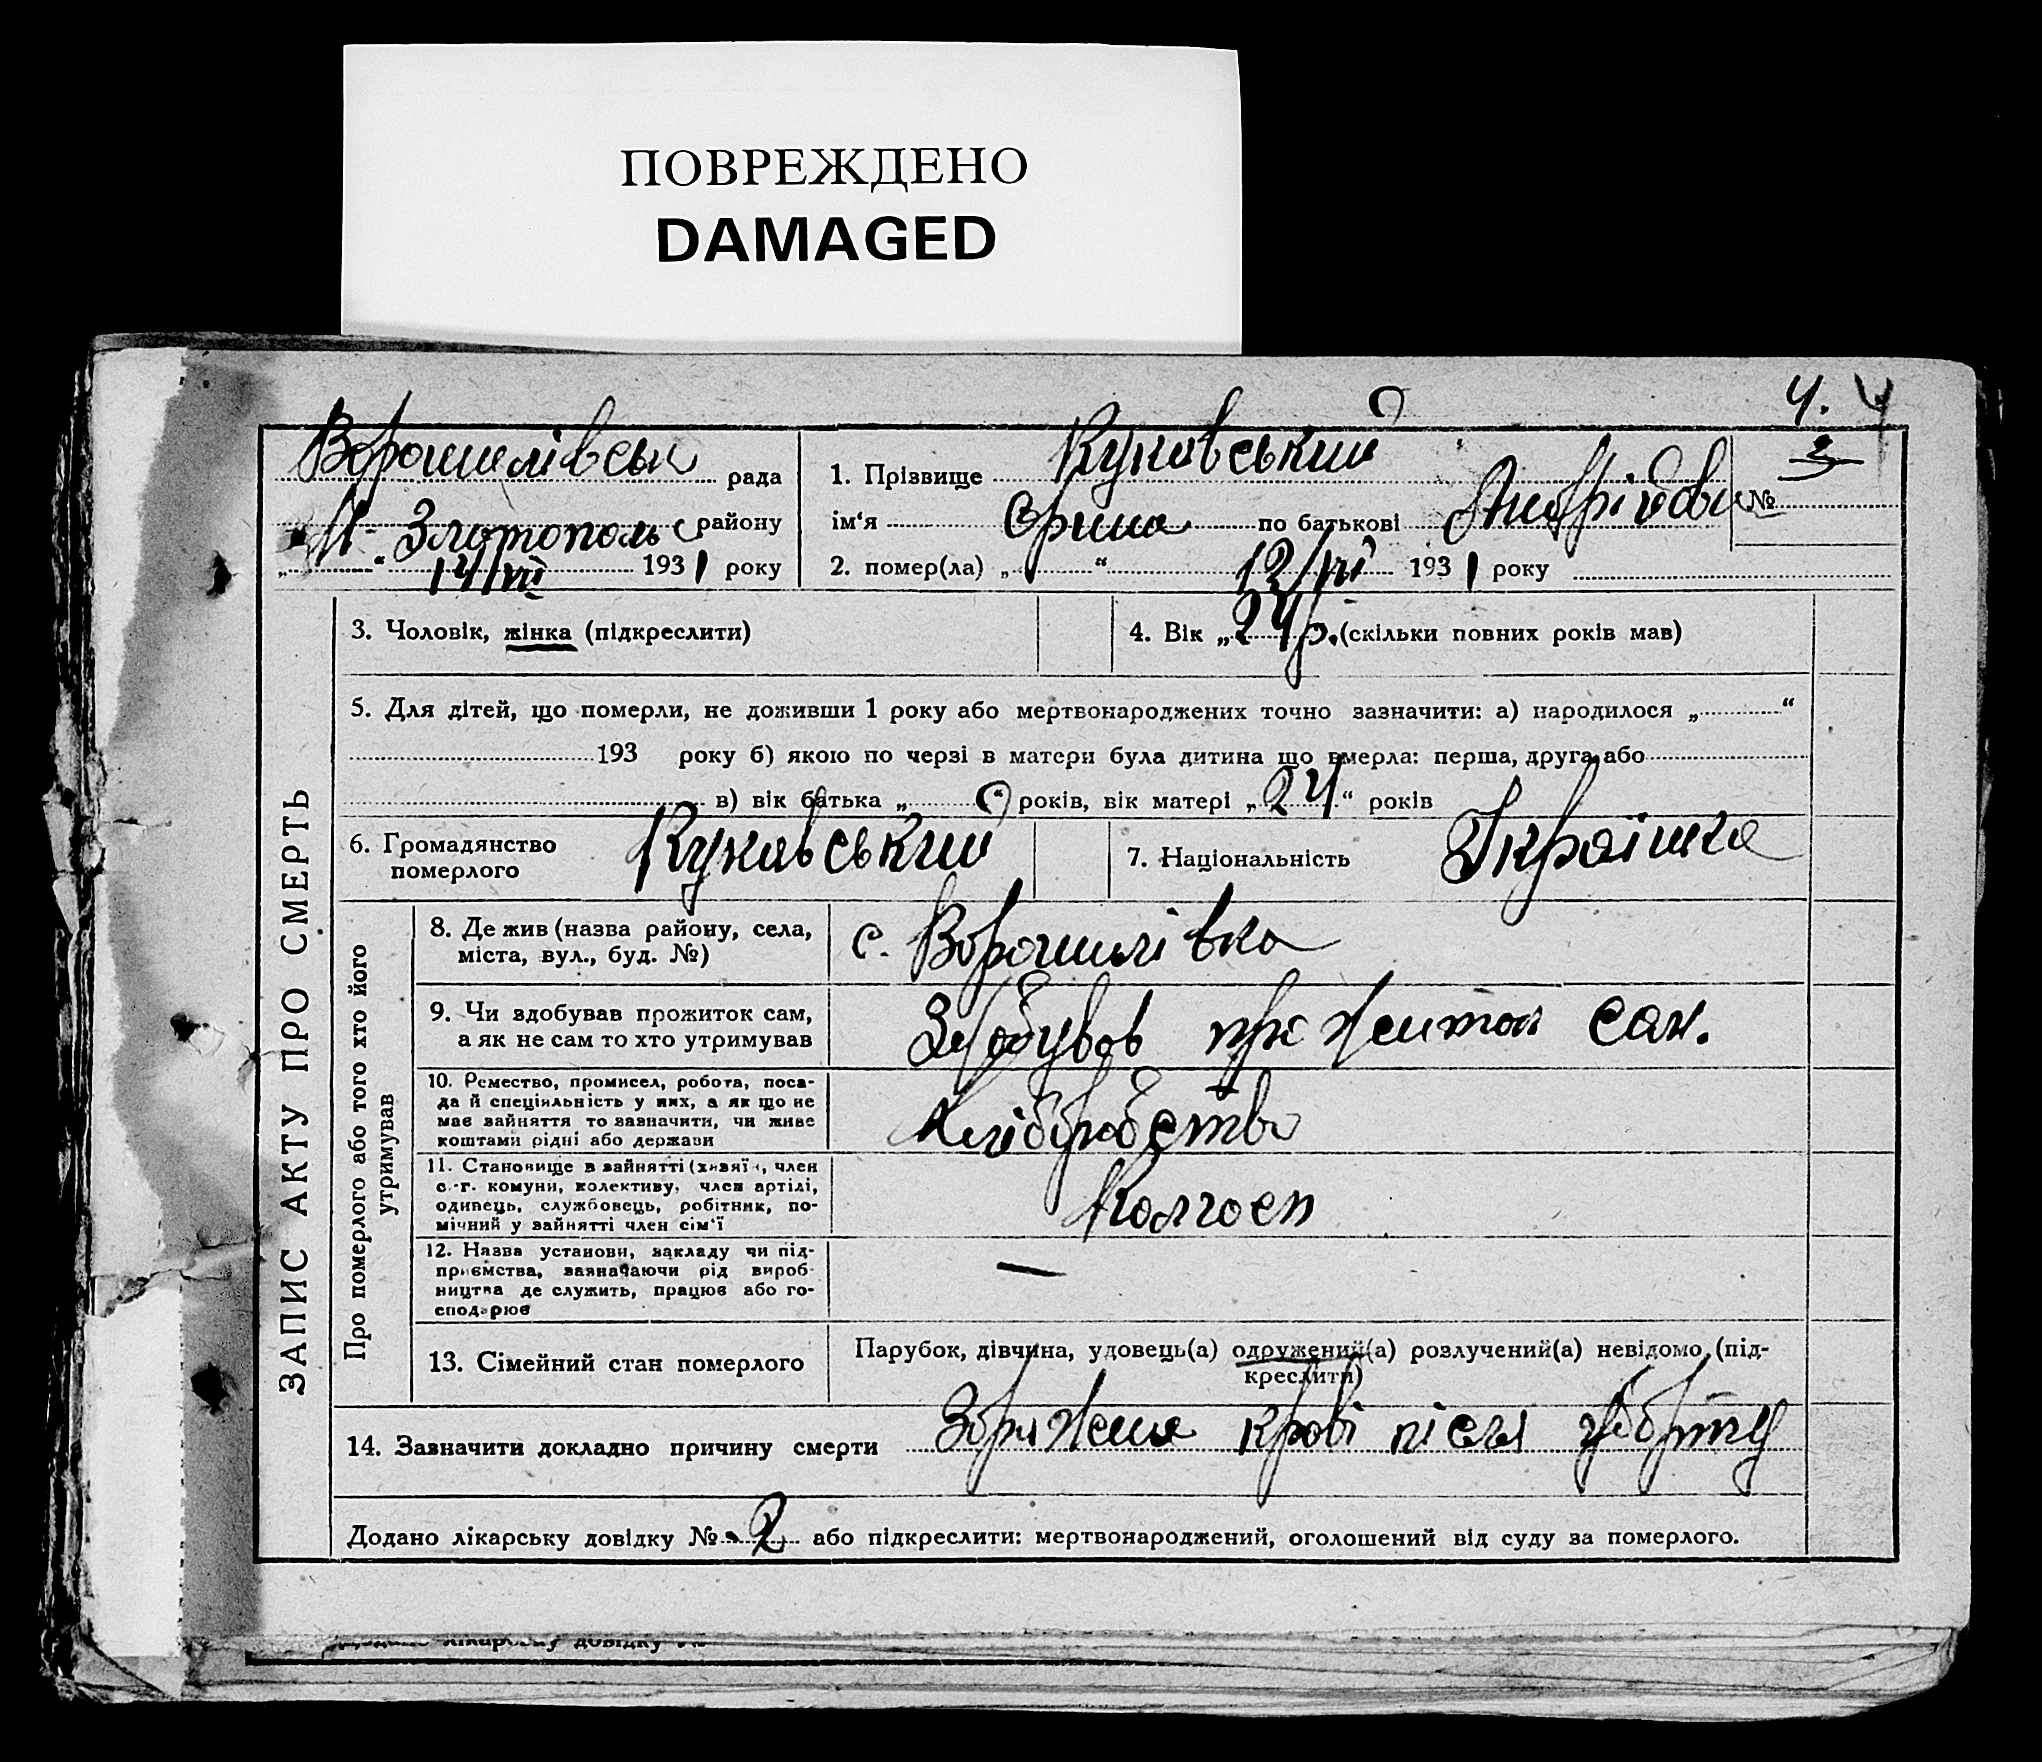 ПОВРЕЖДЕНО
DAMAGED
4. 4
Ворошилівськ рада
Н-Злотополь району
„ “ 14/VII 1931 року
1. Прізвище Кукавський
ім‘я Орина по батькові
№ 3
2. помер(ла) „ “ 12/VII 1931 року
ЗАПИС АКТУ ПРО СМЕРТЬ
3. Чоловік, жінка (підкреслити)
4. Вік „24р.(скільки повних років мав)
5. Для дітей, що померли, не доживши 1 року або мертвонароджених точно зазначити: а) народилося „ “
193 року б) якою по черзі в матери була дитина що вмерла: перша, друга або
в) вік батька „ “ років, вік матері „24“ років
6. Громадянство
померлого
Кукавський
7. Національність Украінка
Про померлого або того хто його
утримував
8. Де жив (назва району, села,
міста, вул., буд. №)
с. Ворошилівка
9. Чи здобував прожиток сам,
а як не сам то хто утримував
Здобував прожиток сам.
10. Ремество, промисел, робота, поса-
да й спеціяльність у них, а як що не
має зайняття то зазначити, чи живе
коштами рідні або держави
Хліборобство
11. Становище в зайнятті (хазяїн, член
с.-г. комуни, колективу, член артілі,
одинець, службовець, робітник, по-
мічний у зайнятті член сім‘ї
Колгосп
12. Назва установи, закладу чи під-
приємства, зазначаючи рід вироб-
ництва де служить, працює або го-
сподарює
—
13. Сімейний стан померлого
Парубок, дівчина, удовець(а) одружений(а) розлучений(а) невідомо (під-
креслити)
14. Зазначити докладно причину смерти Зараження крові після
Додано лікарську довідку № 2 або підкреслити: мертвонароджений, оголошений від суду за померлого.
Додано лікарську довідку №